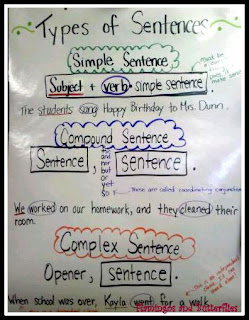 Types of Sentences
Simple Sentence
must be a
Subject + verb = simple sentence.
The students sang Happy Birthday to Mrs. Dunn.
Compound Sentence
Sentence, for and nor but or yet so sentence.
These are called coordinating conjunctions
We worked on our homework, and they cleaned their
room.
Complex Sentence
Opener, sentence.
When school was over, Kayla went for a walk.
Flamingos and Butterflies